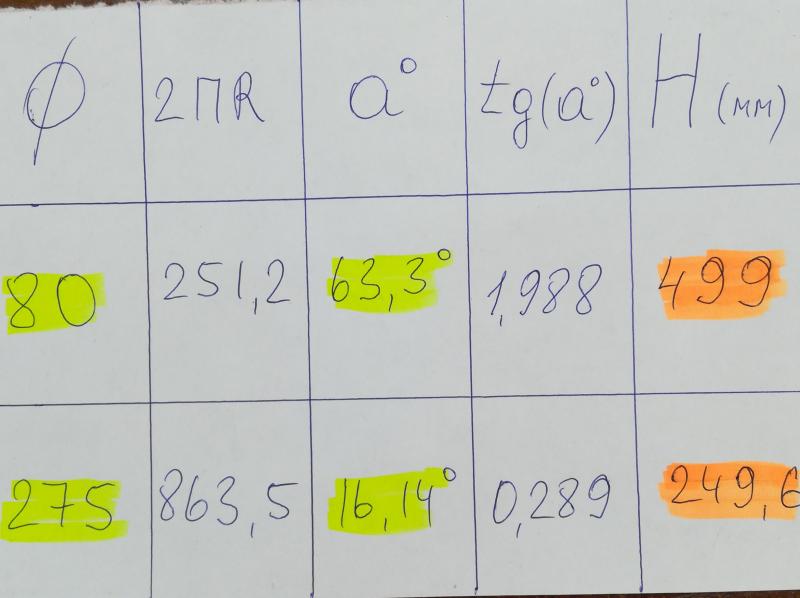 ∅ 2ПR a° tg(a°) H (мм)
80 251,2 63,3° 1,988 499
275 863,5 16,14° 0,289 249,6